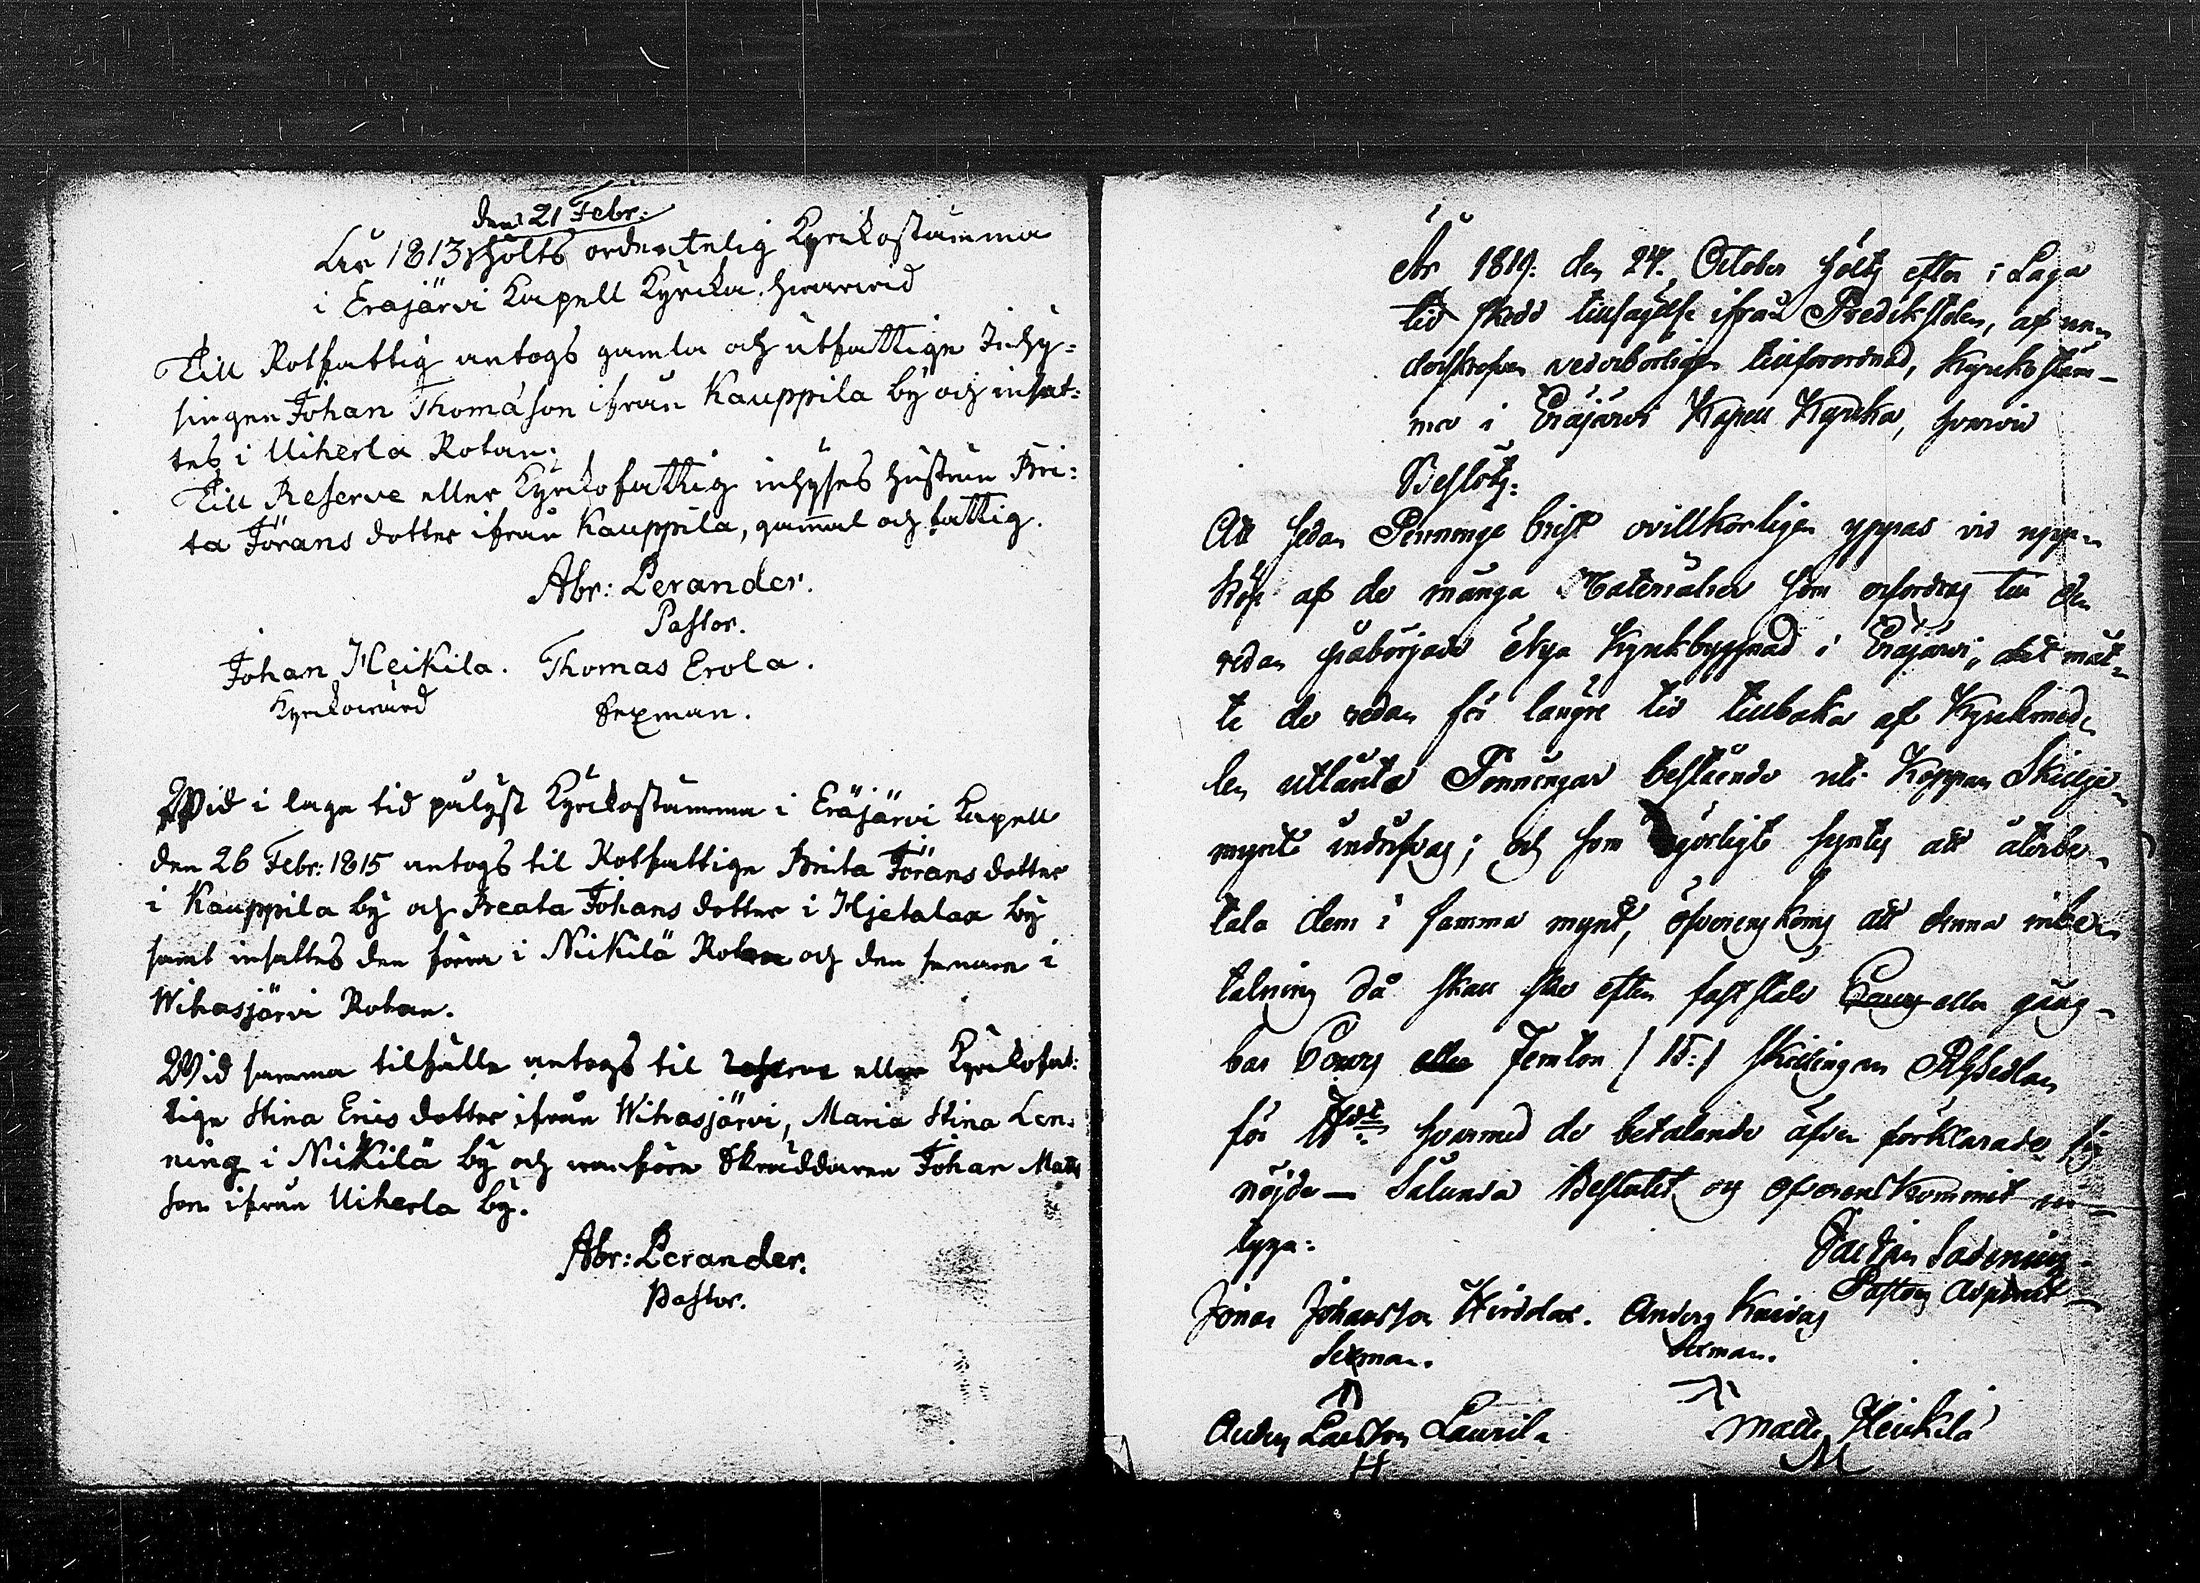 den 21 Febr:
År 1813 hölts ordentelig Kyrckostämma
i Eräjärvi Kapell Kyrcka, hvarwid
Till Rotfattig antogs gamla och utfattige Inhy=
singen Johan Thomasson ifrån Kauppila by och insat=
tes i Uiherla Rotan.
Till Reserve eller Kyrckofattig inhyses hustrun Bri=
ta Jörans dotter ifrån Kauppila, gam̄al och fattig.
Abr: Perander.
Pastor.
Johan Heikila. Thomas Erola.
Kyrckowärd Sexman.
Wid i laga tid pålyst Kyrckostämma i Eräjärvi Kapell
den 26 Febr: 1815 antogs til Rotfattige Brita Jörans dotter
i Kauppila by och Beata Johans dotter i Hjetalax by
samt insattes den förra i Nikilä Rotan och den senare i
Wihasjärvi Rotan.
Wid samma tilfälle antogs til reserve eller Kyrckofat:
tige Stina Erics dotter ifrån Wihasjärvi, Maria Stina Len:
ning i Nikkilä by och vanföre Skräddaren Johan Mats
son ifrån Uiherla by.
Abr: Perander.
Pastor.
År 1819. den 24. October hölts efter i Laga
tid skedd tillsägelse ifrån Predikstolen, af un
derskrefven vederbörligen tillförordnad, Kyrckostäm-
ma i Eräjärvi Kapell Kyrcka, hvarvid
Beslöts:
Att sedan Penninge brist ovillkorligen yppas vid upp
köp af de många Materialier som erfordras till den
redan påbörjade nya Kyrckbyggnad i Eräjärvi, det mås
te de redan för längre tid tillbaka af Kyrckmed
len utlånta Penningar bestående uti Koppar Skillje
mynt indrifvas; och som ogörligt syntes att återbe
tala dem i samma mynt, öfverenskoms att denna inbe
talning då skall ske efter fastställd Cours eller gång
bar Cours eller Femton / 15: / Skillingar Rgssedlar
för hvarmed de betalande äfven förklarade sig
nöjde — Sålunda Beslutit och öfverenskommit in
tyga:
Pastors Adjunct
Jonas Johansson Hirdolax. Anders Kaivas
Sexman. Sexman.
Anders Larsson Laurila Matts Heikilä
H M